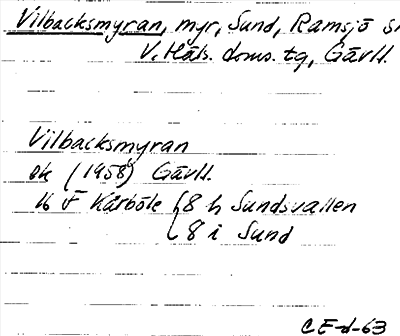 Vilbacksmyran, myr, Sund, Ramsjö
V. Häls. doms. tg, Gävll.
Vilbacksmyran
ek (1958) Gävll.
16 F Kårböle {8 h Sundsvallen
{8 i Sund
CE-d-63